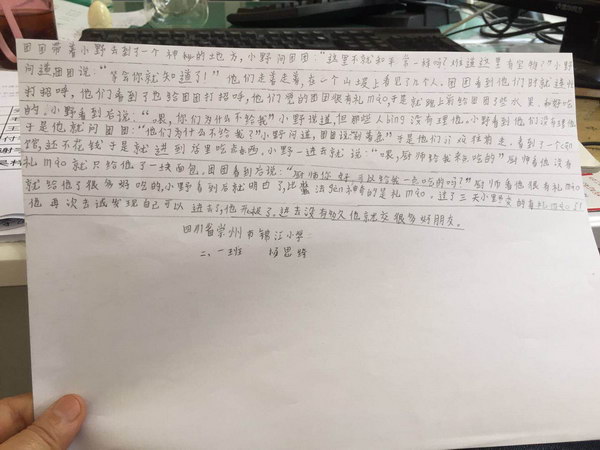 团团带着小野去到了一个神秘的地方，小野问团团："这里不就和平常一样吗？难道这里有宝物？"小野
问道，团团说："等会你就知道了！"他们走着走着，在一个山坡上看见了几个人，团团看到他们时就连忙
打招呼，他们看到了也给团团打招呼，他们觉的团团很有礼mao，于是就跑上前给团团了些水果，和好吃
的，小野看到后说："喂，你们为什么不给我"小野说道，但那些人bing没有理他。小野看到他们没有理他
于是他就问团团："他们为什么不给我？"小野问道，团团说"别着急"于是他们continue往前走，看到了一个can
馆，还不花钱于是就进到店里吃东西。小野一进去就说："喂，厨师给我和吃的"厨师看他没有
礼mao就只给他了一块面包，团团看到后说："厨师你好可以给我一点吃的吗？"厨师看他很有礼mao
就给他了很多好吃的，小野看到后就明白了，比魔法gen神奇的是礼mao，过了三天小野变的有礼mao了
他再次去试发现自己可以进去了，他开心极了，进去没有多久他就交很多好朋友。
四川省崇州市锦江小学
二、一班 杨思绮